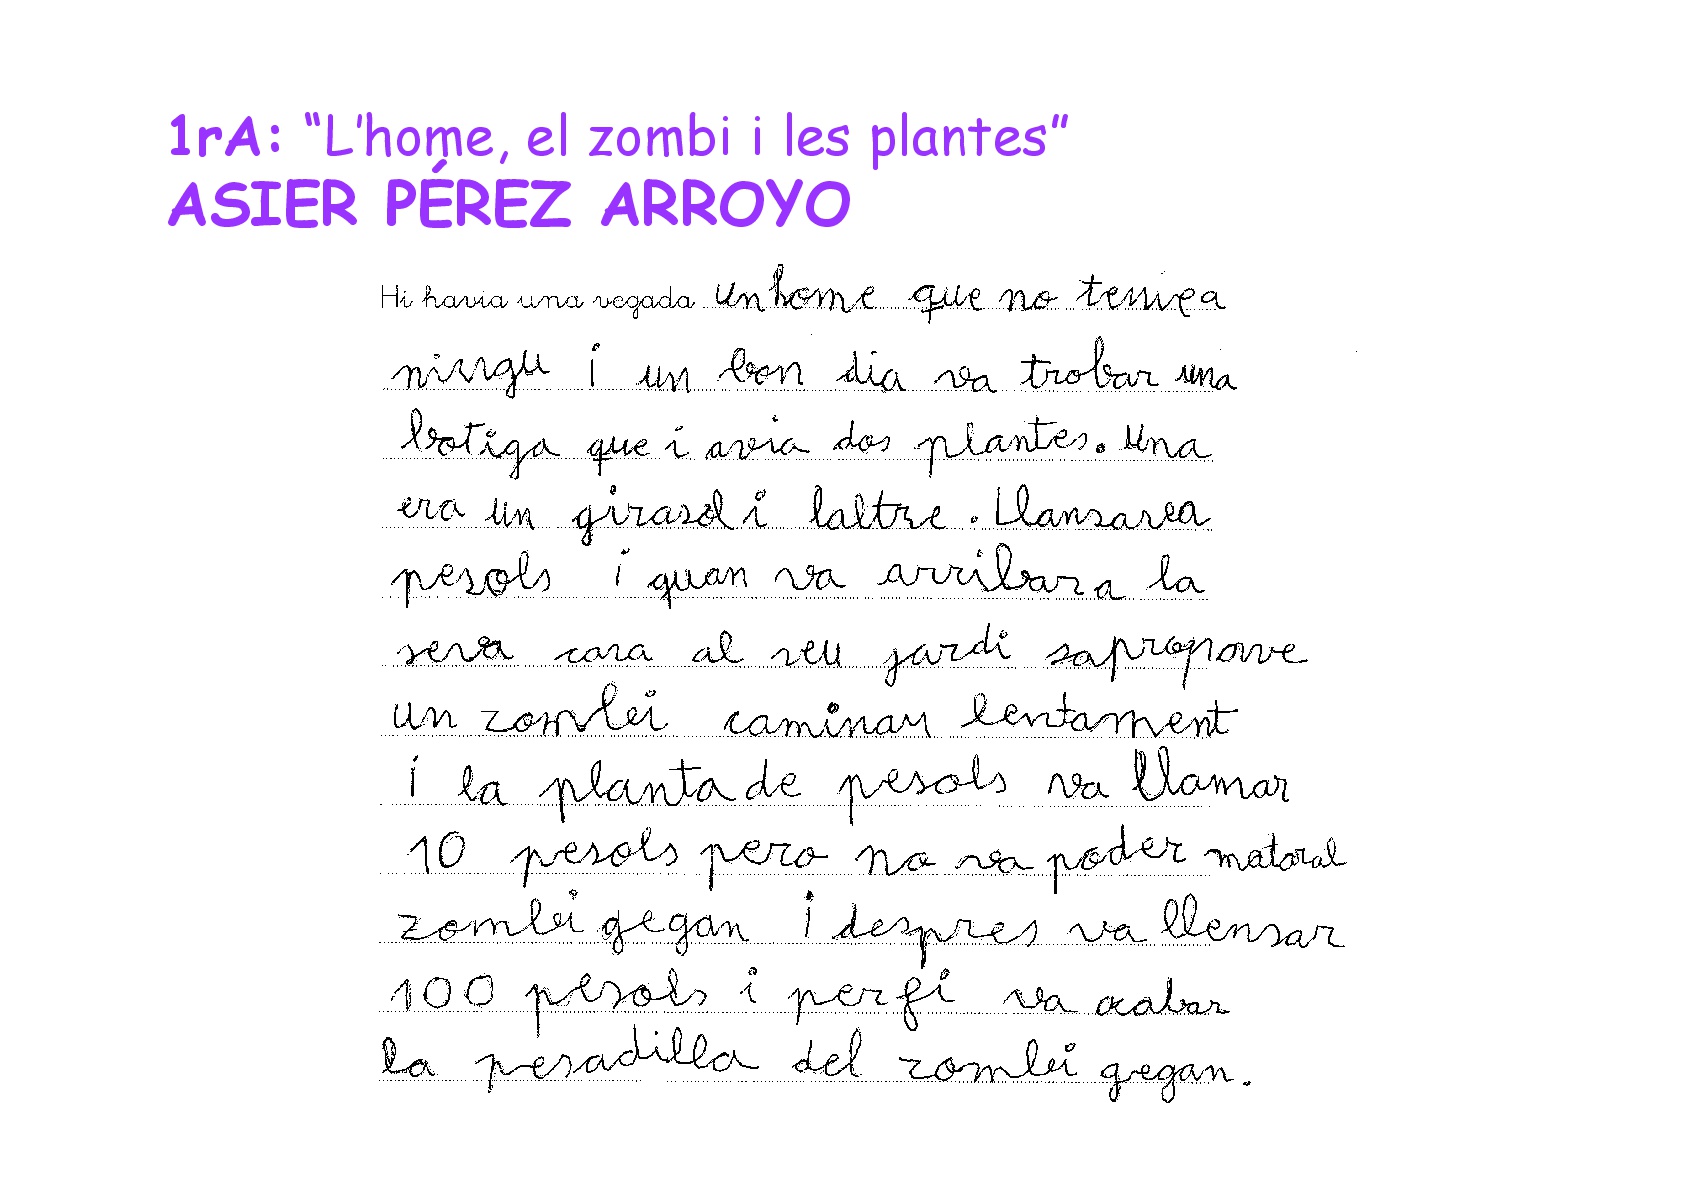 1rA: “L’home, el zombi i les plantes”
ASIER PÉREZ ARROYO
Hi havia una vegada un home que no teniea
ningu i un bon dia va trobar una
botiga que i avia dos plantes. Una
era un girasol i laltre . Llansarea
pesols i quan va arribar a la
seva casa al seu jardi sapropave
un zombi caminau lentament
i la planta de pesols va llamar
10 pesols pero no va poder matar al
zombi gegan i despres va llensar
100 pesols i per fi va acabar
la pesadilla del zombi gegan.